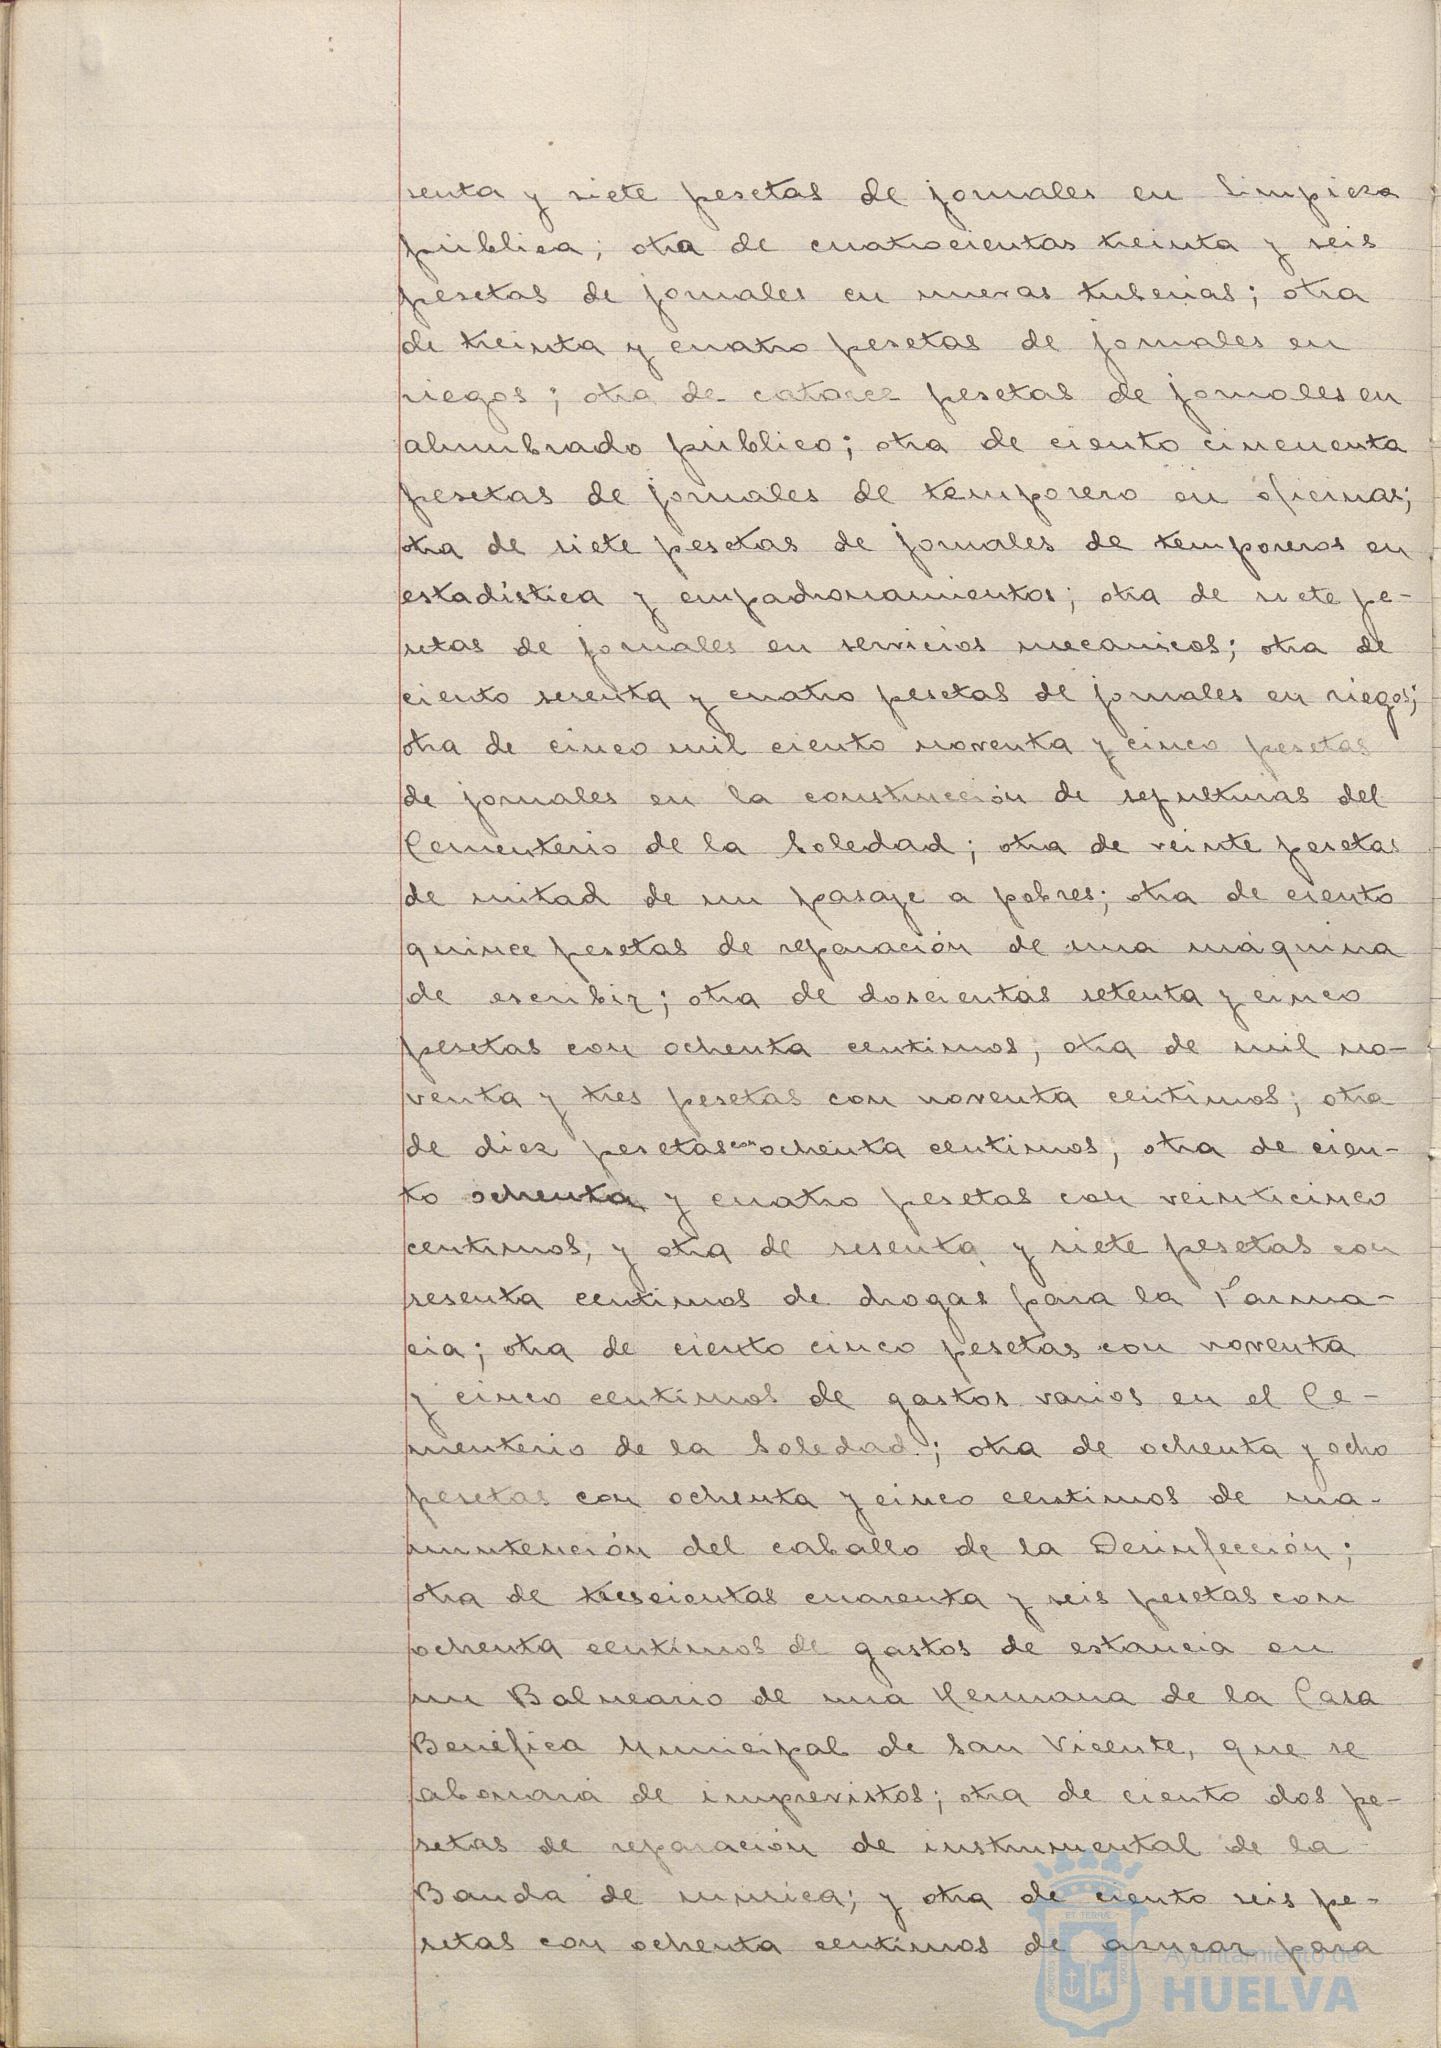 senta y siete pesetas de jornales en Limpieza
pública; otra de cuatrocientas treinta y seis
pesetas de jornales en nuevas tuberías; otra
de treinta y cuatro pesetas de jornales en
riegos; otra de catorce pesetas de jornales en
alumbrado público; otra de ciento cincuenta
pesetas de jornales de temporero en oficinas;
otra de siete pesetas de jornales de temporeros en
estadística y empadronamientos; otra de siete pe-
setas de jornales en servicios mecánicos; otra de
ciento sesenta y cuatro pesetas de jornales en riegos;
otra de cinco mil ciento noventa y cinco pesetas
de jornales en la construcción de sepulturas del
Cementerio de la Soledad; otra de veinte pesetas
de mitad de un pasaje a pobres; otra de ciento
quince pesetas de reparación de una máquina
de escribir; otra de doscientas setenta y cinco
pesetas con ochenta centimos; otra de mil no-
venta y tres pesetas con noventa centimos; otra
de diez pesetas con ochenta centimos; otra de cien-
to ochenta y cuatro pesetas con veinticinco
centimos, y otra de sesenta y siete pesetas con
sesenta centimos de drogas para la Farma-
cia; otra de ciento cinco pesetas con noventa
y cinco centimos de gastos varios en el Ce-
menterio de la Soledad; otra de ochenta y ocho
pesetas con ochenta y cinco centimos de ma-
nutención del caballo de la Desinfección;
otra de trescientas cuarenta y seis pesetas con
ochenta centimos de gastos de estancia en
un Balneario de una Hermana de la Casa
Benéfica Municipal de San Vicente, que se
abonará de imprevistos; otra de ciento dos pe-
setas de reparación de instrumental de la
Banda de música; y otra de ciento seis pe-
setas con ochenta centimos de azucar para
Ayuntamiento de
HUELVA